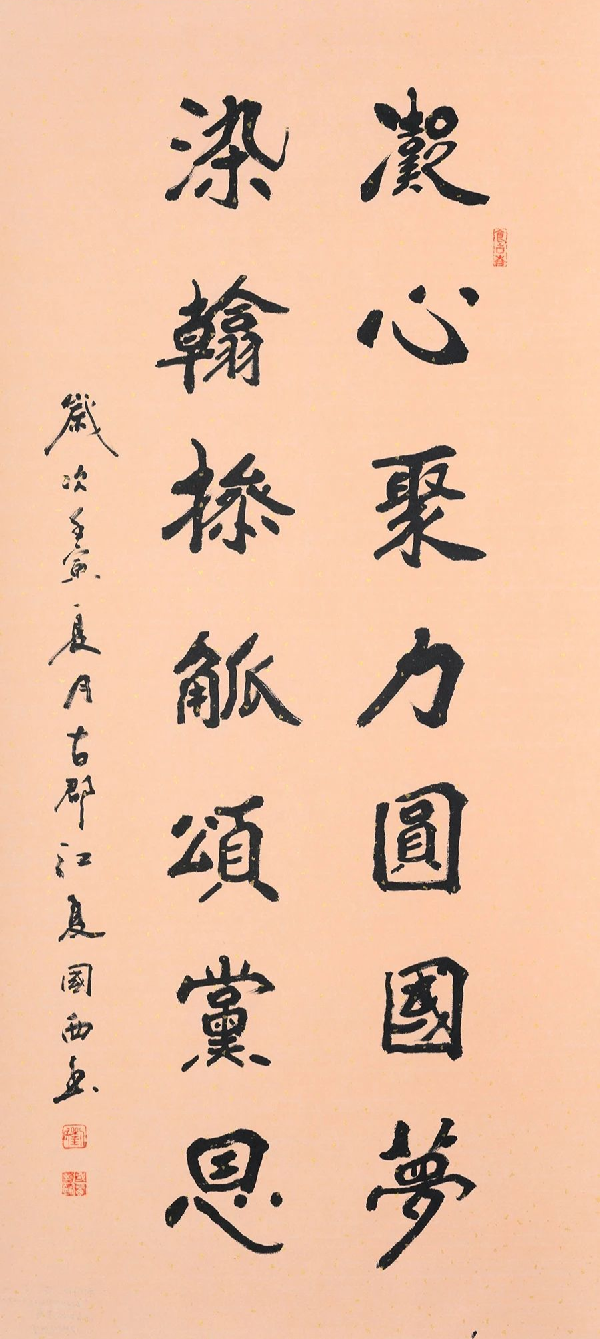 凝心聚力圓國夢
染翰操觚頌黨恩
歲次壬寅夏月古郡江夏國西書